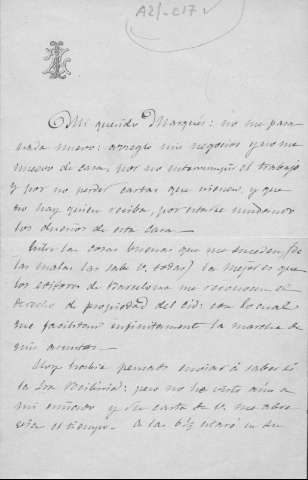 A21-c17
Mi querido Marqués: no me pasa
nada nuevo: arreglo mis negocios y no me
muevo de casa, por no interrumpir el trabajo
y por no perder cartas que vienen, y que
no hay quien reciba, por estarse mudando
los dueños de esta casa.
Entre las cosas buenas que me suceden (de
las malas las sabe V. todas) la mejor es que
los editores de Barcelona me reconocen el
derecho de propiedad del Cid: con lo cual
que facilitan infinitamente la marcha de
mis asuntos.
Hoy había pensado enviar á saber de
la Sra : pero no he visto aún a
mi y su carta de V. me ahorra
el tiempo. A las 6½ estaré en su